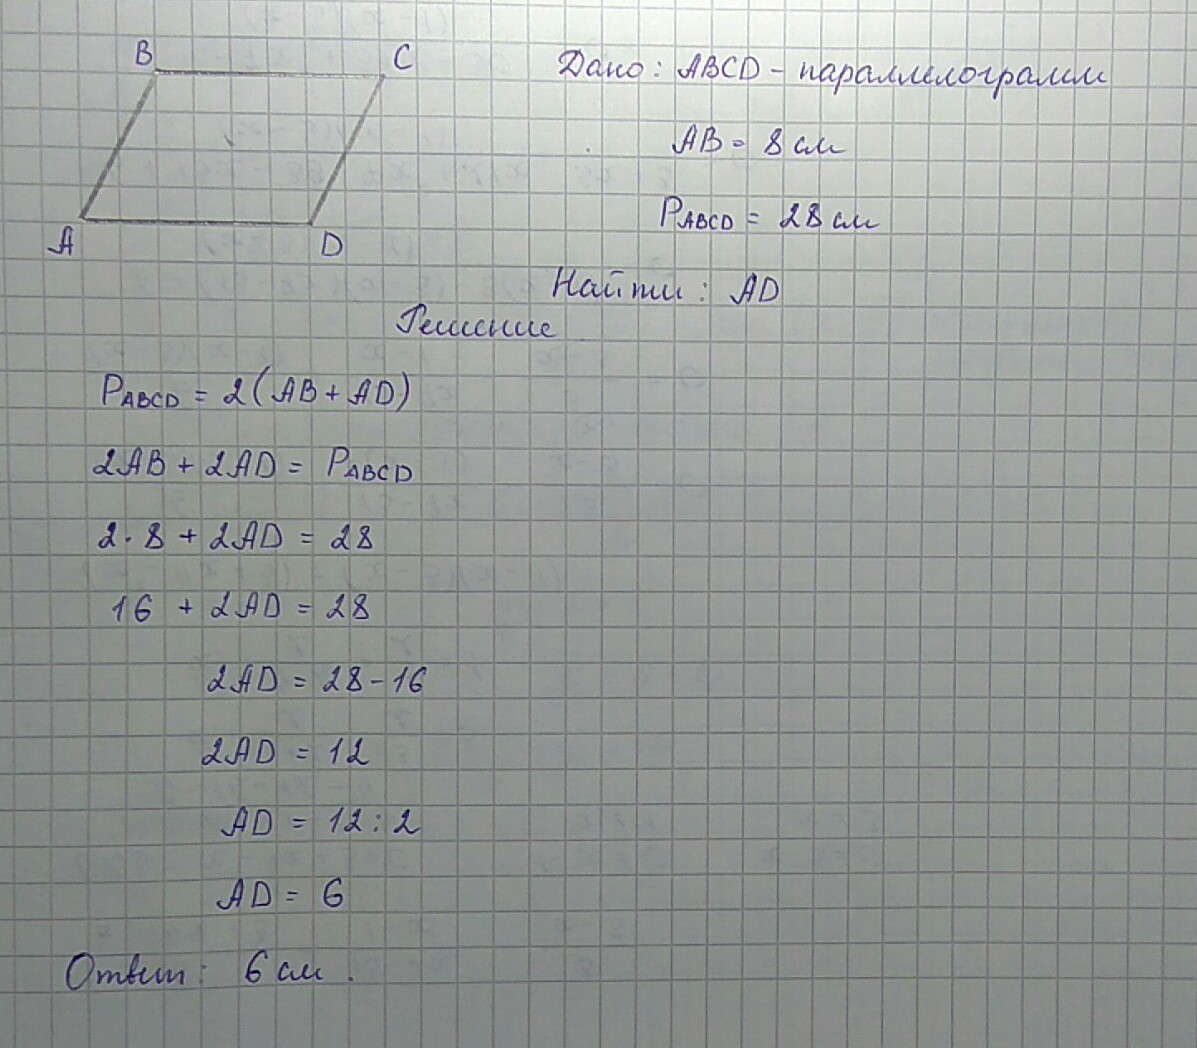 B C
Дано: ABCD - параллелограмм
AB = 8 см
PABCD = 28 см
A D
Найти: AD
Решение
PABCD = 2(AB + AD)
2AB + 2AD = PABCD
2·8 + 2AD = 28
16 + 2AD = 28
2AD = 28-16
2AD = 12
AD = 12:2
AD = 6
Ответ: 6 см.